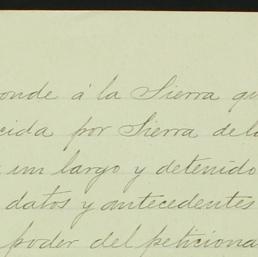 onde á la Sierra qu
cida por Sierra de
un largo y detenido
datos y antecedentes
poder del peticiona